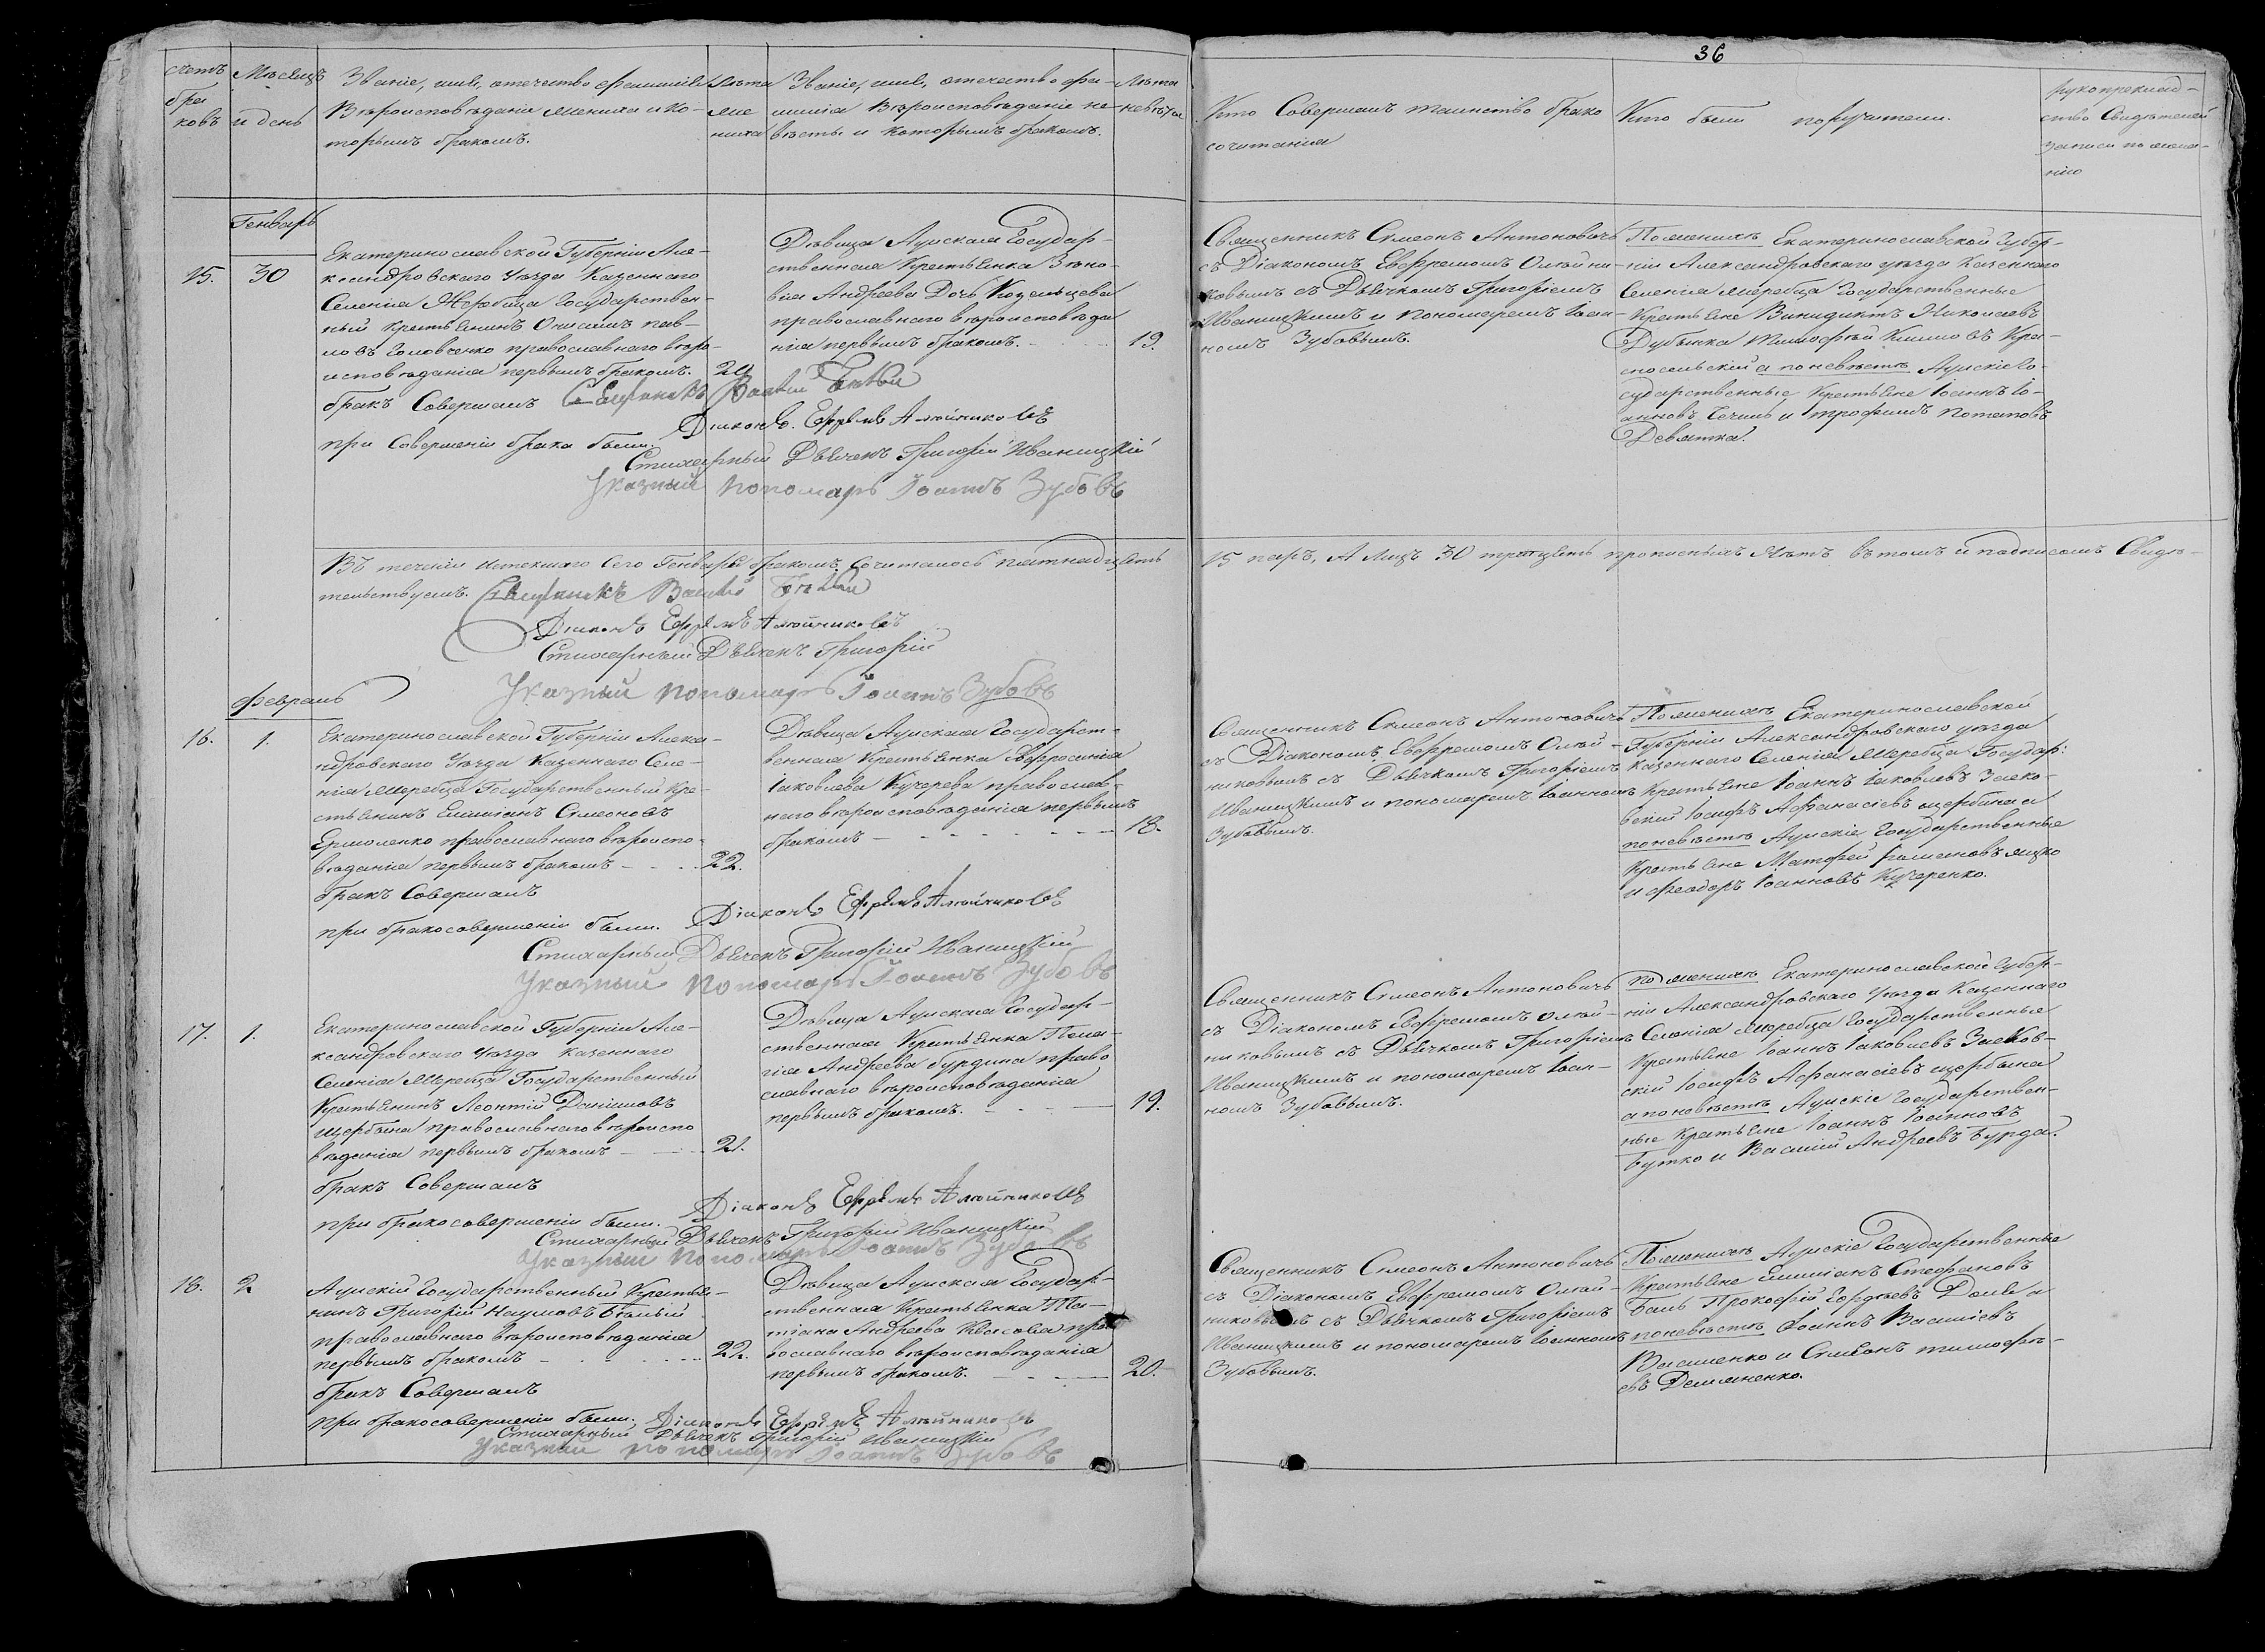 36
счетъ бра ковъ
Мѣсяцъ и день
Званіе, имя, отечество фамилія
Вѣроисповѣданіе жениха и ко-
торымъ бракомъ.
Лѣта же ниха
Званіе, имя, отечество фа-
милія Вѣроисповѣданіе не-
вѣсты и которымъ бракомъ.
Лѣта невѣсты
Кто Совершалъ таинство брако
сочитанія
Кто были поручители.
рукоприклад-
ство Свидѣтелей
записи по жела-
нію
Генварь
15.
30
Екатеринославской Губерніи Але-
ксандровскаго Уѣзда Казеннаго
Селенія Жеребца Государствен-
ный крестьянинъ Онисимъ пав-
ловъ Головченко православнаго вѣро-
исповѣданія первымъ бракомъ.
20
Дѣвица Аулская Государ-
ственная Крестьянка Зѣно-
вія Андреева Дочь
православнаго вѣроисповѣда
нія первымъ бракомъ.
19.
Священникъ Симеонъ Антоновичъ
съ Діакономъ Евфремомъ Олѣйни-
ковымъ съ Дьячкомъ Григоріемъ
Иваницкимъ и пономаремъ Іоан-
номъ Зубовымъ.
По женихѣ Екатеринославской Губер-
ніи Александровскаго уѣзда Казеннаго
Селенія Жеребца Государственные
Крестьяне Николаевъ
Дубинка Тимофей Климовъ Кра-
сносельскій а по невѣстѣ Аулскіе Го-
сударственные Крестьяне Іоаннъ Іо-
анновъ и трофимъ потаповъ
Девятка.
бракъ Совершалъ Священикъ
при Совершеніи брака были. Діаконъ Ефремъ Алюйниковъ
Стихарный Дьячекъ Григорій Иваницкій
Указный Пономарь Іоаннъ Зубовъ
Въ теченіи истекшаго Сего Генваря бракомъ Сочиталось пятнадцать
15 паръ, А лицъ 30 тритцать прописныхъ лѣтъ въ томъ и подписомъ Свидѣ-
тельствуемъ. Священикъ
Діаконъ Ефремъ Алюйниковъ
Стихарный Дьячекъ Григорій
Указный пономарь Іоаннъ Зубовъ
Февраль
16.
1.
Екатеринославской Губерніи Алекса-
ндровскаго Уѣзда Казеннаго Селе-
нія Жеребца Государственный Кре-
стьянинъ Емиліанъ Симеоновъ
Ермоленко православнаго вѣроиспо-
вѣданія первымъ бракомъ
22.
Дѣвица Аулская Государст-
венная Крестьянка Евфросинія
Іаковлева Кучерева православ-
наго вѣроисповѣданія первымъ
бракомъ
18.
Священникъ Симеонъ Антоновичъ
съ Діакономъ Евфремомъ Олѣй-
никовымъ съ Дьячкомъ Григоріемъ
Иваницкимъ и пономаремъ Іоанномъ
Зубовымъ.
По женихѣ Екатеринославской
Губерніи Александровскаго уѣзда
Казеннаго Селенія Жеребца Государ:
Крестьяне Іоаннъ Іаковлевъ Заско-
вскій Іосифъ Афанасіевъ щербина а
по невѣстѣ Аулскіе Государственные
Крестьяне Матфей
и феодоръ Іоанновъ Кучеренко.
бракъ Совершалъ
при бракосовершеніи были. Діаконъ Ефремъ Алюйниковъ
Стихарный Дьячекъ Григорій Иваницкій
Указный Пономарь Іоаннъ Зубовъ
17.
1.
Екатеринославской Губерніи Але-
ксандровскаго Уѣзда казеннаго
Селенія Жеребца Государственный
Крестьянинъ Леонтій Даніиловъ
Щербина православнаго вѣроиспо
вѣданія первымъ бракомъ
21.
Дѣвица Аулская Государ-
ственная Крестьянка Пела-
гія Андреева бурдина право
славнаго вѣроисповѣданія
первымъ бракомъ.
19.
Священникъ Симеонъ Антоновичъ
съ Діакономъ Евфремомъ олѣй-
никовымъ съ Дьячкомъ Григоріемъ
Иваницкимъ и пономаремъ Іоан-
номъ Зубовымъ.
по женихѣ Екатеринославской Губер-
ніи Александровскаго Уѣзда Казеннаго
Селенія Жеребца Государственные
Крестьяне Іоаннъ Іаковлевъ Засков-
скій Іосифъ Афанасіевъ щербина
а по невѣстѣ Аулскіе Государствен-
ные Крестьяне Іоаннъ Іоанновъ
Бутко и Василій Андреевъ Бурда.
бракъ Совершалъ
при бракосовершеніи были. Діаконъ Ефремъ Алюйниковъ
Стихарный Дьячекъ Григорій Иваницкій
Указный Пономарь Іоаннъ Зубовъ
18.
2
Аулскій Государственный Крестья-
нинъ Григорій Наумовъ Бѣлый
православнаго вѣроисповѣданія
первымъ бракомъ
22.
Дѣвица Аулская Государ-
ственная Крестьянка Та-
тіана Андреева Квасова пра
вославнаго вѣроисповѣданія
первымъ бракомъ.
20.
Священникъ Симеонъ Антоновичъ
съ Діакономъ Евфремомъ Олѣй-
никовымъ съ Дьячкомъ Григоріемъ
Иваницкимъ и пономаремъ Іоанномъ
Зубовымъ.
По женихѣ Аулскіе Государственные
Крестьяне Емиліанъ Стефановъ
Прокофій а
по невѣстѣ Іоаннъ Василіевъ
Василенко и Симеонъ тимофѣ-
евъ Демяненко.
бракъ Совершалъ
при бракосовершеніи были. Діаконъ Ефремъ Алюйниковъ
Стихарный Дьячекъ Григорій Иваницкій
Указный пономарь Іоаннъ Зубовъ